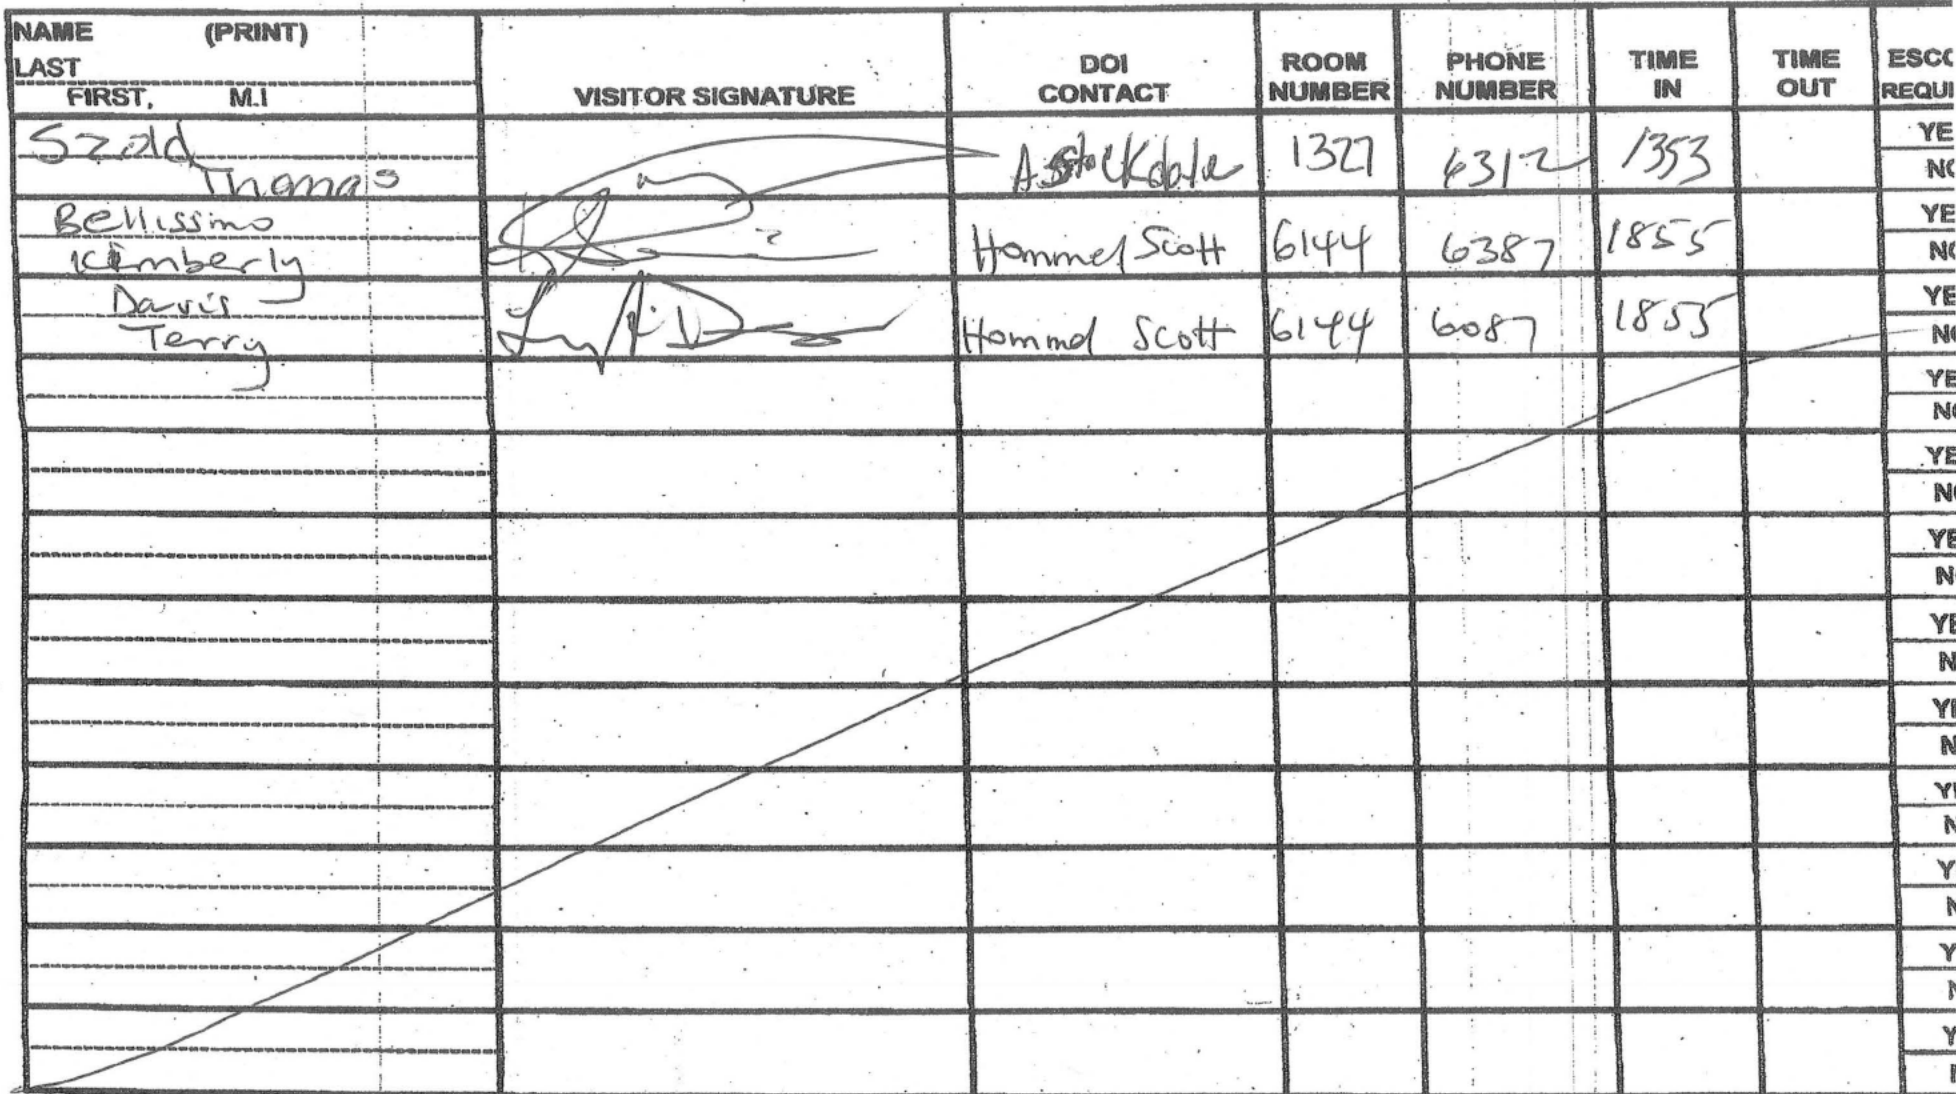 NAME (PRINT)
LAST
FIRST, M.I
VISITOR SIGNATURE
DOI
CONTACT
ROOM
NUMBER
PHONE
NUMBER
TIME
IN
TIME
OUT
ESCO
REQUI
Szold
Thomas
A Stockdale 1327 6312 1353
YE
NO
Bellissimo
Kimberly
Hommel Scott 6144 6387 1855
YE
NO
Davis
Terry
Hommel Scott 6144 6087 1855
YE
NO
YE
NO
YE
NO
YE
N
YE
N
YE
N
YE
N
Y
N
Y
N
Y